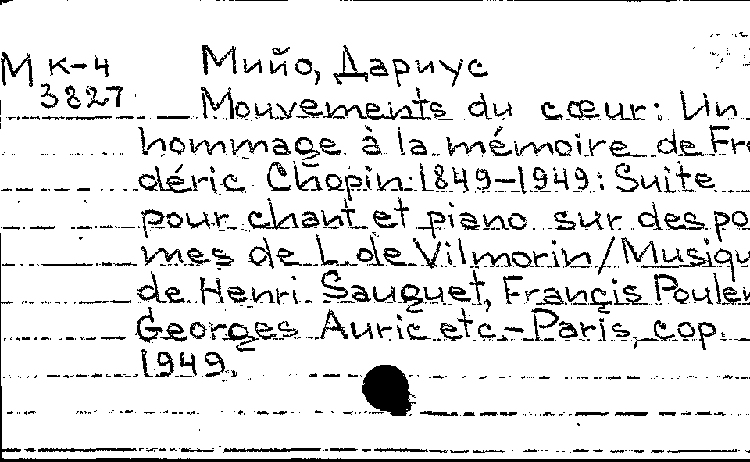 М К-4 Мийо, Дариус
3827 Mouvements du cœur: Un
hommage à la mémoire de Fré
déric Chopin. 1849-1949: Suite
pour chant et piano sur des po
mes de L. de Vilmorin/Musiqu
de Henri Sauguet, Francis Poulen
Georges Auric etc.-Paris, cop.
1949.